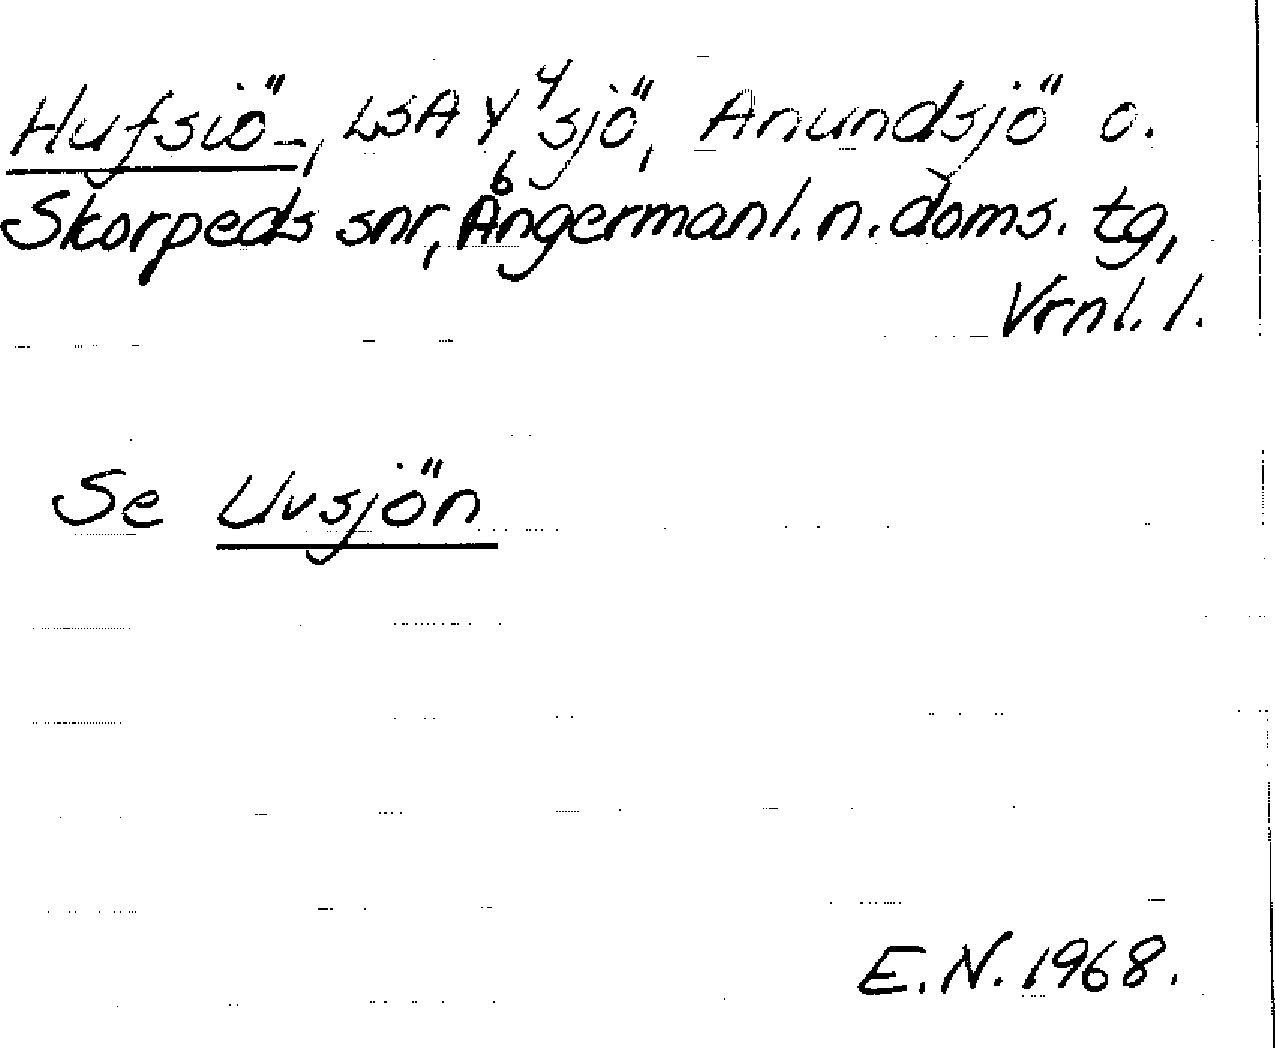 Hufsiö-, LSA Y⁴ sjö, Anundsjö o.
Skorpeds snr, Ångermanl. n. doms. tg,
Vrnl. l.
Se Uvsjön
E.N. 1968.